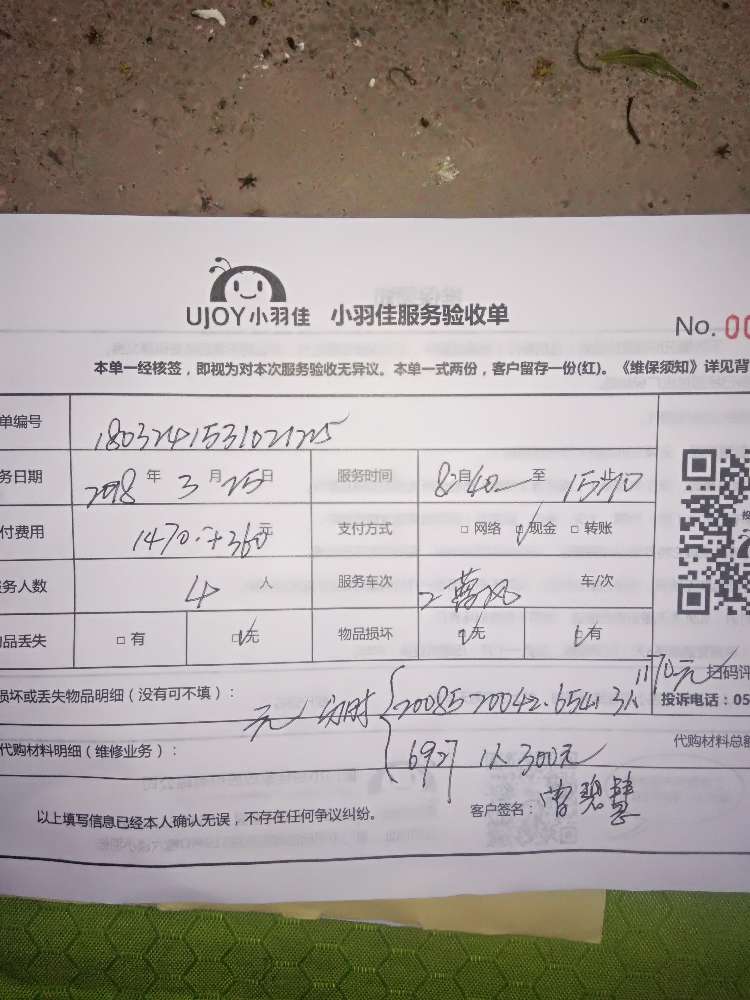 UJOY小羽佳 小羽佳服务验收单
No. 00
本单一经核签，即视为对本次服务验收无异议。本单一式两份，客户留存一份(红)。《维保须知》详见背
单编号 1803241531021225
务日期 2018年 3月 25日 服务时间 8自40 至 15止10
付费用 1470. 360元 支付方式 □ 网络 ☑ 现金 □ 转账
务人数 4 人 服务车次 2 车/次
品丢失 □ 有 ☑ 无 物品损坏 ☑ 无 ☑ 有
损坏或丢失物品明细（没有可不填）： 无
20085 20042. 6541. 3人 1170元
扫码评
投诉电话：05
代购材料明细（维修业务）： 6927 1人 300元
代购材料总额
以上填写信息已经本人确认无误，不存在任何争议纠纷。
客户签名： 曾碧慧